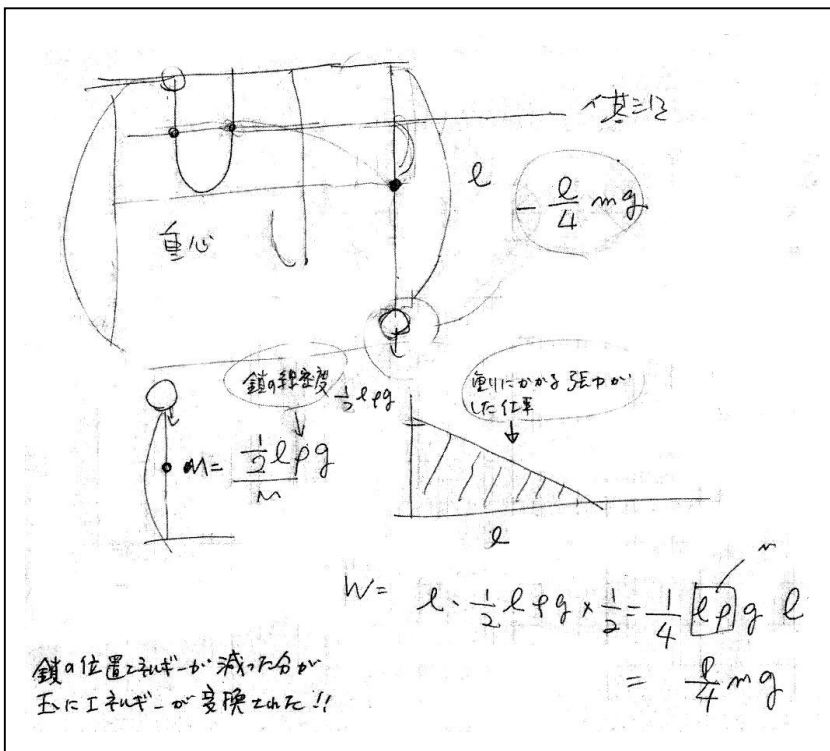 基準
l
- l/4 mg
重心
鎖の線密度
1/2 lρg
重りにかかる張力が
した仕事
M = 1/2 lρg
m
l
m
W = l・1/2 lρg × 1/2 = 1/4 lρ g l
= l/4 mg
鎖の位置エネルギーが減った分が
玉にエネルギーが変換された!!